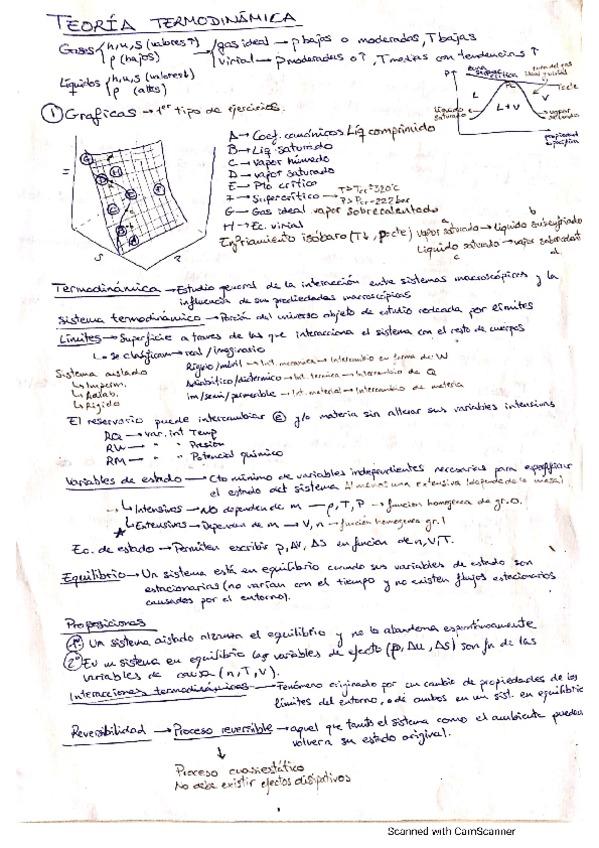 TEORÍA TERMODINÁMICA
Gases h, u, s (valores ↑) ρ (bajos) gas ideal → p bajos o moderadas, T bajas
virial → p moderadas o ↑, T medias con tendencias ↑
Líquidos h, u, s (valores ↓) ρ (altos)
① Graficas → 1er tipo de ejercicios.
P↑
L
L+V
V
T=cte
Líquido saturado
vapor saturado
propiedad específica
A → Coef. canónicos Líq comprimido
B → Líq. saturado
C → vapor húmedo
D → vapor saturado
E → Pto crítico
F → Supercrítico
G → Gas ideal vapor sobrecalentado
H → Ec. virial
Enfriamiento isóbaro (T↓, p cte)
vapor saturado → líquido subenfriado
Líquido saturado → vapor
Termodinámica → Estudio general de la interacción entre sistemas macroscópicos y la
influencia de sus propiedades macroscópicas
Sistema termodinámico → Porción del universo objeto de estudio rodeada por límites
Límites → Superficie a traves de las que interacciona el sistema con el resto de cuerpos
L→ Se clasifican → real / imaginario
Sistema aislado
↳ Imperm.
↳ Adiab.
↳ Rígido
Rígido/móvil → Int. mecanica → Intercambio en forma de W
Adiabático/diatérmico → Int. termica → Intercambio de Q
Im/semi/permeable → Int. material → Intercambio de materia
El reservorio puede intercambiar Ⓔ y/o materia sin alterar sus variables intensivas
RQ → var. int Temp
RW → " " Presión
RM → " " Potencial químico
Variables de estado → Cto mínimo de variables independientes necesarias para especificar
el estado del sistema Al menos una extensiva (depende de la masa)
→ ↳ Intensivas → NO dependen de m → ρ, T, P → función homogenea de gr. 0.
★ ↳ Extensivas → Dependen de m → V, n → función homogenea gr. 1
Ec. de estado → Permiten escribir p, ΔU, ΔS en funcion de n, V, T.
Equilibrio → Un sistema está en equilibrio cuando sus variables de estado son
estacionarias (no varían con el tiempo y no existen flujos estacionarios
causados por el entorno).
Proposiciones
① Un sistema aislado alcanza el equilibrio y no lo abandona espontáneamente
② En un sistema en equilibrio las variables de efecto (p, Δu, Δs) son fn de las
variables de causa (n, T, V).
Interacciones termodinámicas → Fenómeno originado por un cambio de propiedades de los
límites del entorno, o de ambos en un sist. en equilibrio
Reversibilidad → Proceso reversible → aquel que tanto el sistema como el ambiente pueden
volver a su estado original.
↓
Proceso cuasiestático
No debe existir efectos disipativos
Scanned with CamScanner